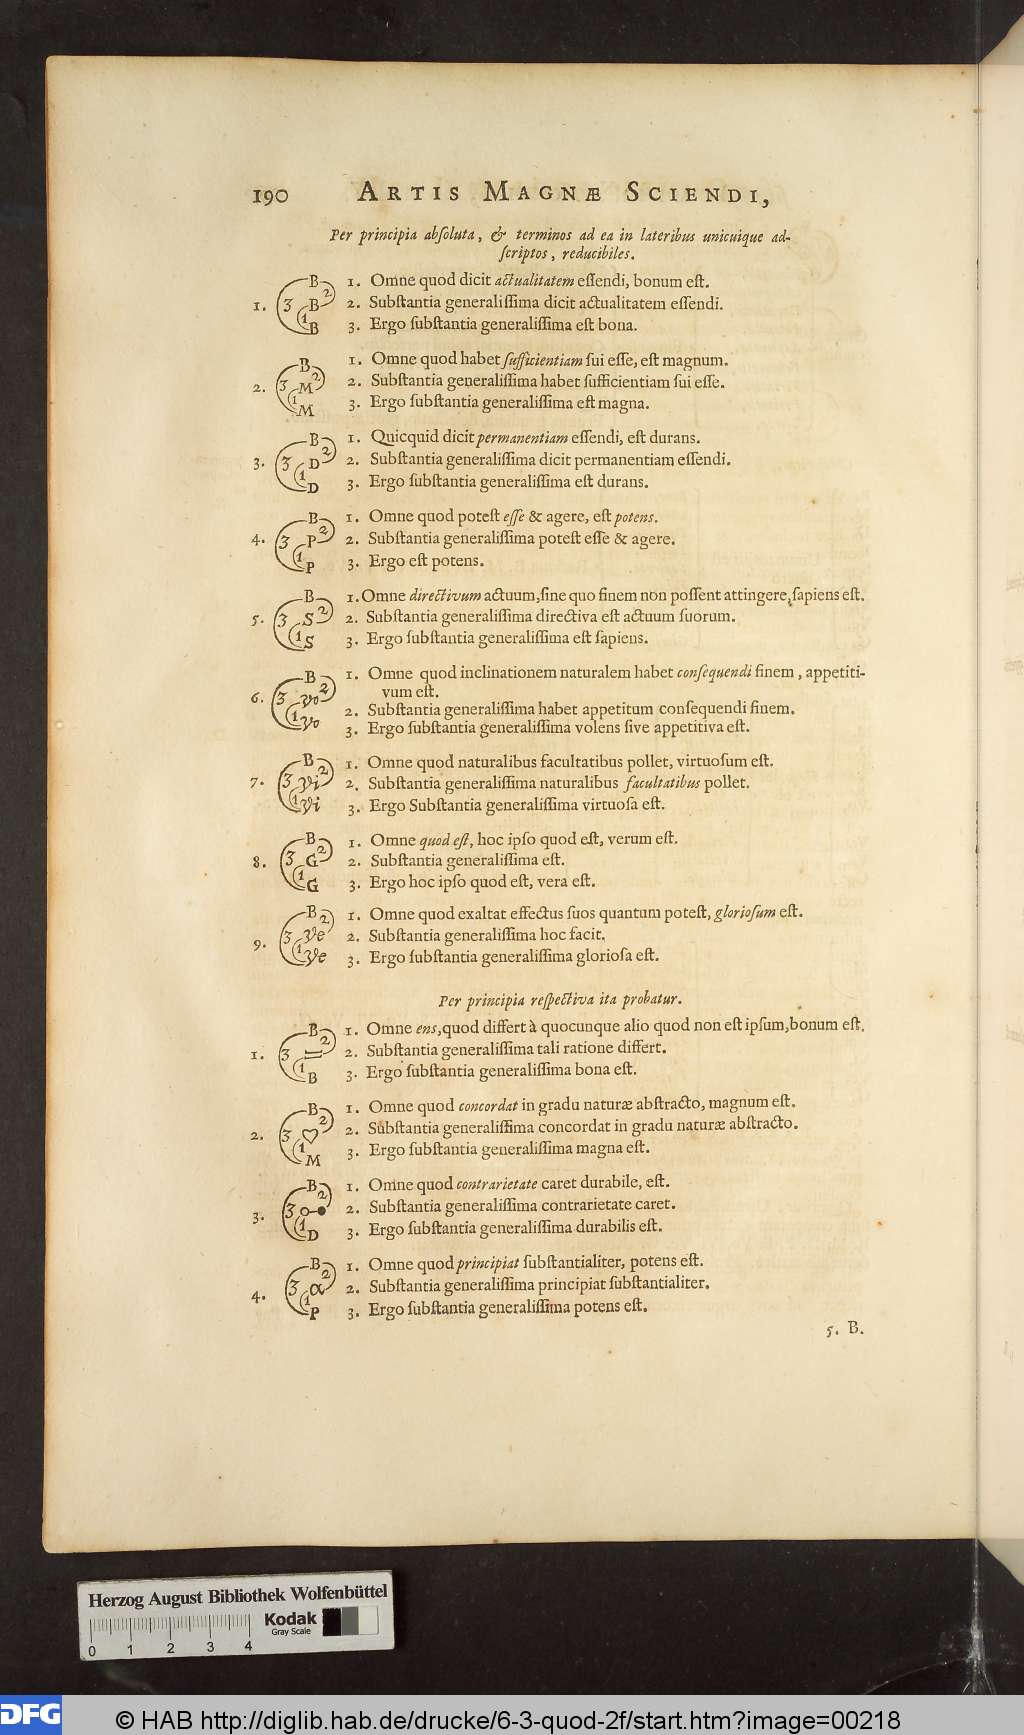 190 ARTIS MAGNÆ SCIENDI,
Per principia abſoluta, & terminos ad ea in lateribus unicuique ad-
ſcriptos, reducibiles.
1. B 2 3 B 1 B 1. Omne quod dicit actualitatem eſſendi, bonum eſt.
2. Subſtantia generaliſſima dicit actualitatem eſſendi.
3. Ergo ſubſtantia generaliſſima eſt bona.
2. B 2 3 M 1 M 1. Omne quod habet ſufficientiam ſui eſſe, eſt magnum.
2. Subſtantia generaliſſima habet ſufficientiam ſui eſſe.
3. Ergo ſubſtantia generaliſſima eſt magna.
3. B 2 3 D 1 D 1. Quicquid dicit permanentiam eſſendi, eſt durans.
2. Subſtantia generaliſſima dicit permanentiam eſſendi.
3. Ergo ſubſtantia generaliſſima eſt durans.
4. B 2 3 P 1 P 1. Omne quod poteſt eſſe & agere, eſt potens.
2. Subſtantia generaliſſima poteſt eſſe & agere.
3. Ergo eſt potens.
5. B 2 3 S 1 S 1. Omne directivum actuum, ſine quo finem non poſſent attingere, ſapiens eſt.
2. Subſtantia generaliſſima directiva eſt actuum ſuorum.
3. Ergo ſubſtantia generaliſſima eſt ſapiens.
6. B 2 3 Vo 1 Vo 1. Omne quod inclinationem naturalem habet conſequendi finem, appetiti-
vum eſt.
2. Subſtantia generaliſſima habet appetitum conſequendi finem.
3. Ergo ſubſtantia generaliſſima volens ſive appetitiva eſt.
7. B 2 3 Vi 1 Vi 1. Omne quod naturalibus facultatibus pollet, virtuoſum eſt.
2. Subſtantia generaliſſima naturalibus facultatibus pollet.
3. Ergo Subſtantia generaliſſima virtuoſa eſt.
8. B 2 3 G 1 G 1. Omne quod eſt, hoc ipſo quod eſt, verum eſt.
2. Subſtantia generaliſſima eſt.
3. Ergo hoc ipſo quod eſt, vera eſt.
9. B 2 3 Ve 1 Ve 1. Omne quod exaltat effectus ſuos quantum poteſt, glorioſum eſt.
2. Subſtantia generaliſſima hoc facit.
3. Ergo ſubſtantia generaliſſima glorioſa eſt.
Per principia reſpectiva ita probatur.
1. B 2 3 = 1 B 1. Omne ens, quod differt à quocunque alio quod non eſt ipſum, bonum eſt.
2. Subſtantia generaliſſima tali ratione differt.
3. Ergo ſubſtantia generaliſſima bona eſt.
2. B 2 3 ♡ 1 M 1. Omne quod concordat in gradu naturæ abſtracto, magnum eſt.
2. Subſtantia generaliſſima concordat in gradu naturæ abſtracto.
3. Ergo ſubſtantia generaliſſima magna eſt.
3. B 2 3 o–● 1 D 1. Omne quod contrarietate caret durabile, eſt.
2. Subſtantia generaliſſima contrarietate caret.
3. Ergo ſubſtantia generaliſſima durabilis eſt.
4. B 2 3 α 1 P 1. Omne quod principiat ſubſtantialiter, potens eſt.
2. Subſtantia generaliſſima principiat ſubſtantialiter.
3. Ergo ſubſtantia generaliſſima potens eſt.
5. B.
Herzog August Bibliothek Wolfenbüttel
Kodak
Gray Scale
0 1 2 3 4
DFG © HAB http://diglib.hab.de/drucke/6-3-quod-2f/start.htm?image=00218